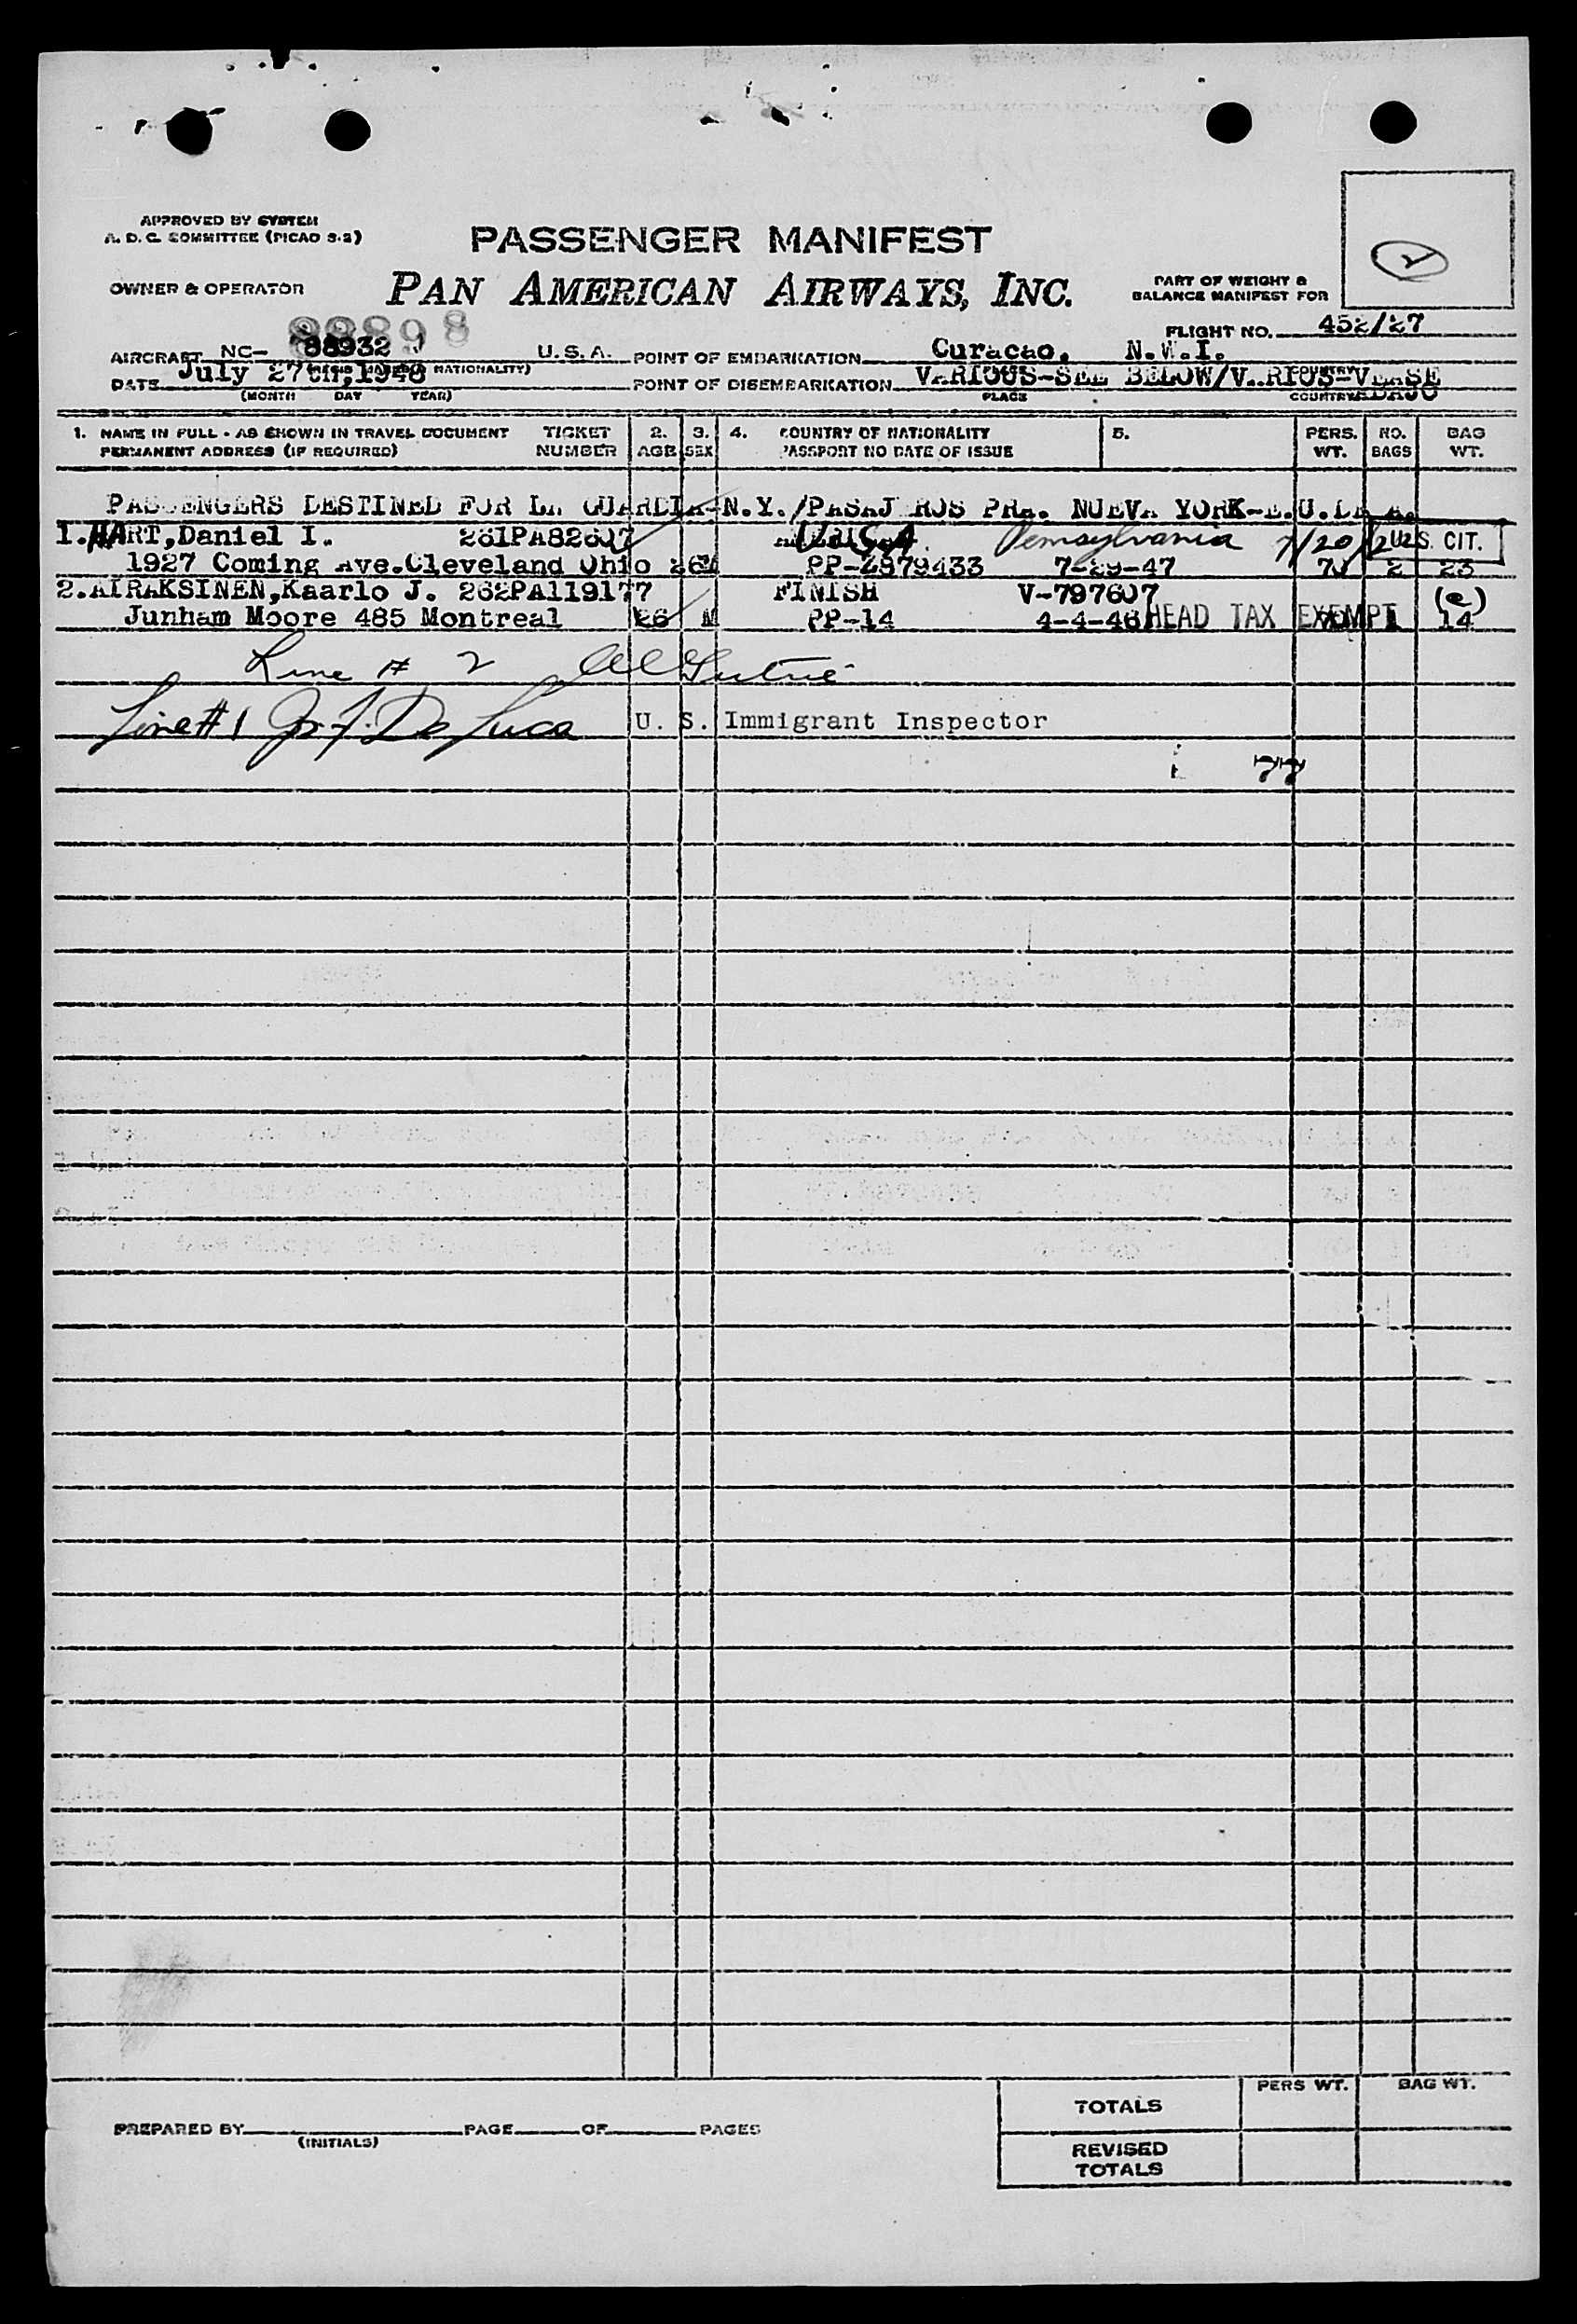 APPROVED BY SYSTEM
A. D. C. COMMITTEE (PICAO S-2)
PASSENGER MANIFEST
OWNER & OPERATOR
PAN AMERICAN AIRWAYS, INC.
PART OF WEIGHT &
BALANCE MANIFEST FOR
88898
FLIGHT NO. 452/27
AIRCRAFT NC- 88932 U. S. A. POINT OF EMBARKATION Curacao, N.W.I.
NATIONALITY)
DATE July 27th,1948 POINT OF DISEMBARKATION VARIOUS-SEE BELOW/VARIOS-VEASE
(MONTH DAY YEAR) PLACE COUNTRY ABAJO
1. NAME IN FULL - AS SHOWN IN TRAVEL DOCUMENT TICKET 2. 3. 4. COUNTRY OF NATIONALITY 5. PERS. NO. BAG
PERMANENT ADDRESS (IF REQUIRED) NUMBER AGE SEX PASSPORT NO DATE OF ISSUE WT. BAGS WT.
PASSENGERS DESTINED FOR LA GUARDIA-N.Y./PASAJEROS PRA. NUEVA YORK-E.U.DE A.
1.HART,Daniel I. 261PA82607 U.S.A. Pennsylvania 7/20/22 U.S. CIT.
1927 Coming Ave.Cleveland Ohio 26 M PP-2879433 7-29-47 70 2 23
2.AIRAKSINEN,Kaarlo J. 262PA119177 FINISH V-797607 (e)
Junham Moore 485 Montreal 26 M PP-14 4-4-46 HEAD TAX EXEMPT 14
Line # 2
Line #1 Jos. F. De Luca U. S. Immigrant Inspector
77
PERS WT. BAG WT.
TOTALS
PREPARED BY PAGE OF PAGES
(INITIALS)
REVISED
TOTALS